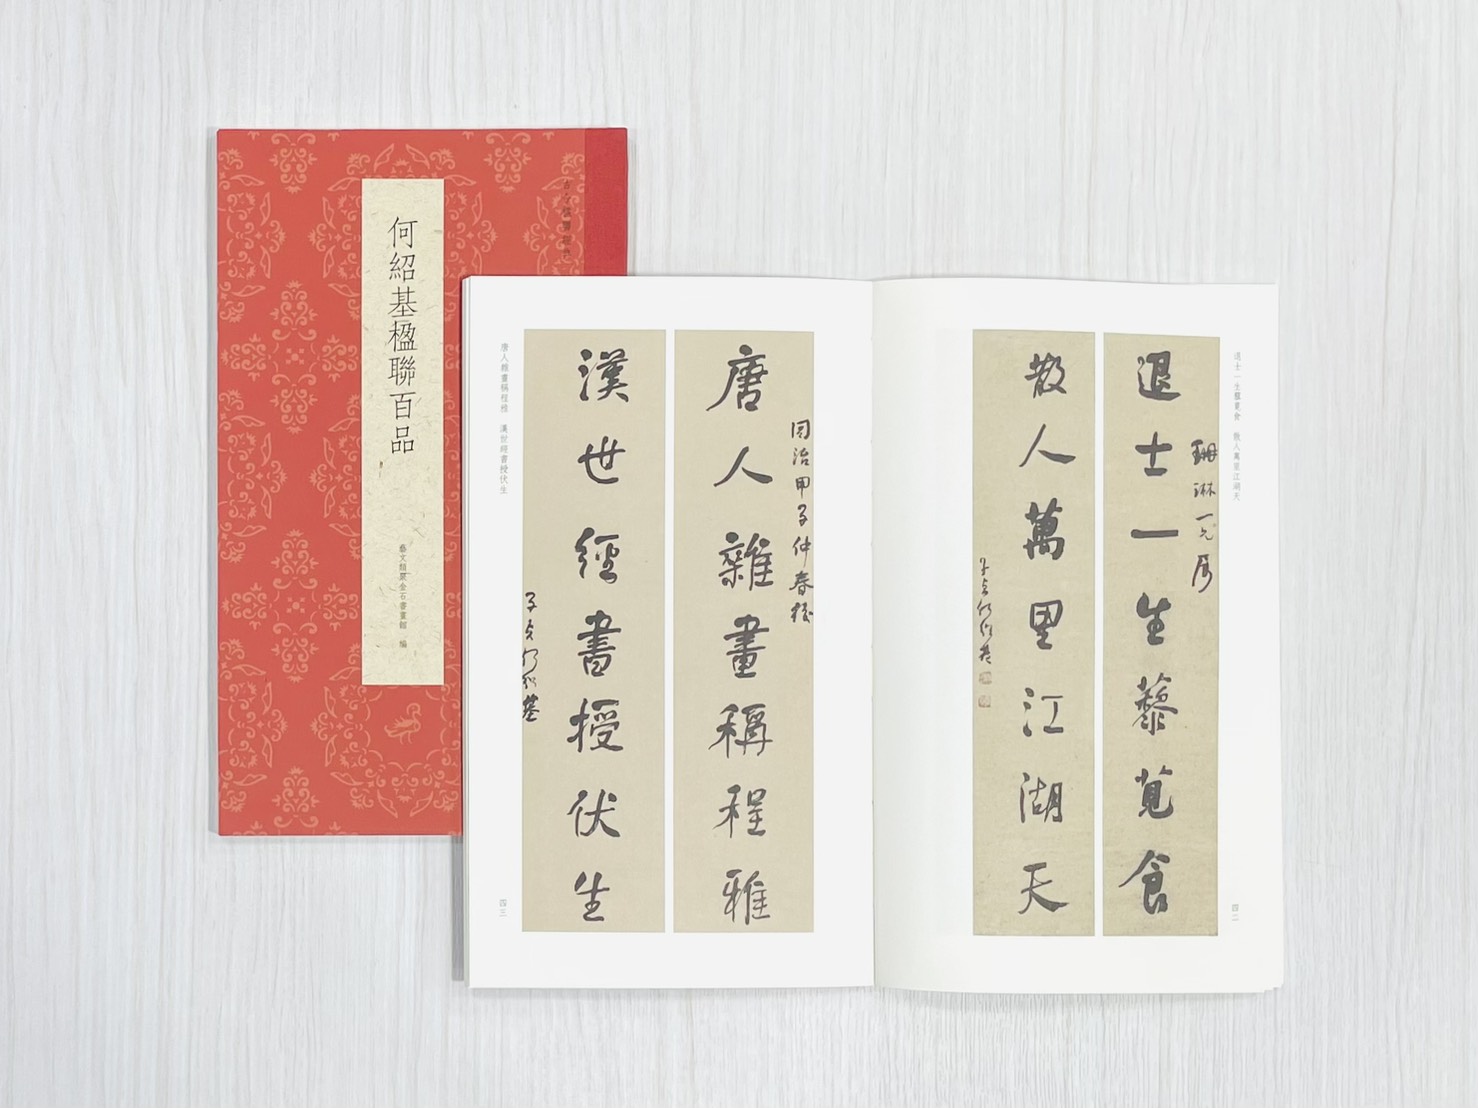 何紹基楹聯百品
藝文類聚金石書畫館 編
退士一生藜莧食 散人萬里江湖天
珊琳一兄屬
退士一生藜莧食
散人萬里江湖天
子貞何紹基
四二
同治甲子仲春後
唐人雜畫稱程雅
漢世經書授伏生
子貞何紹基
唐人雜畫稱程雅 漢世經書授伏生
四三